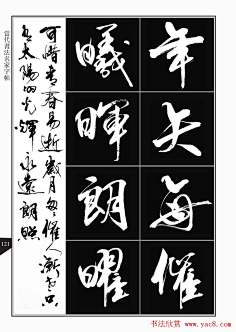 年矢每催
曦暉朗曜
可惜青春易逝歲月每催人漸老只
有太陽的光輝永遠朗照
當代書法名家字帖
121
书法欣赏 www.yac8.com